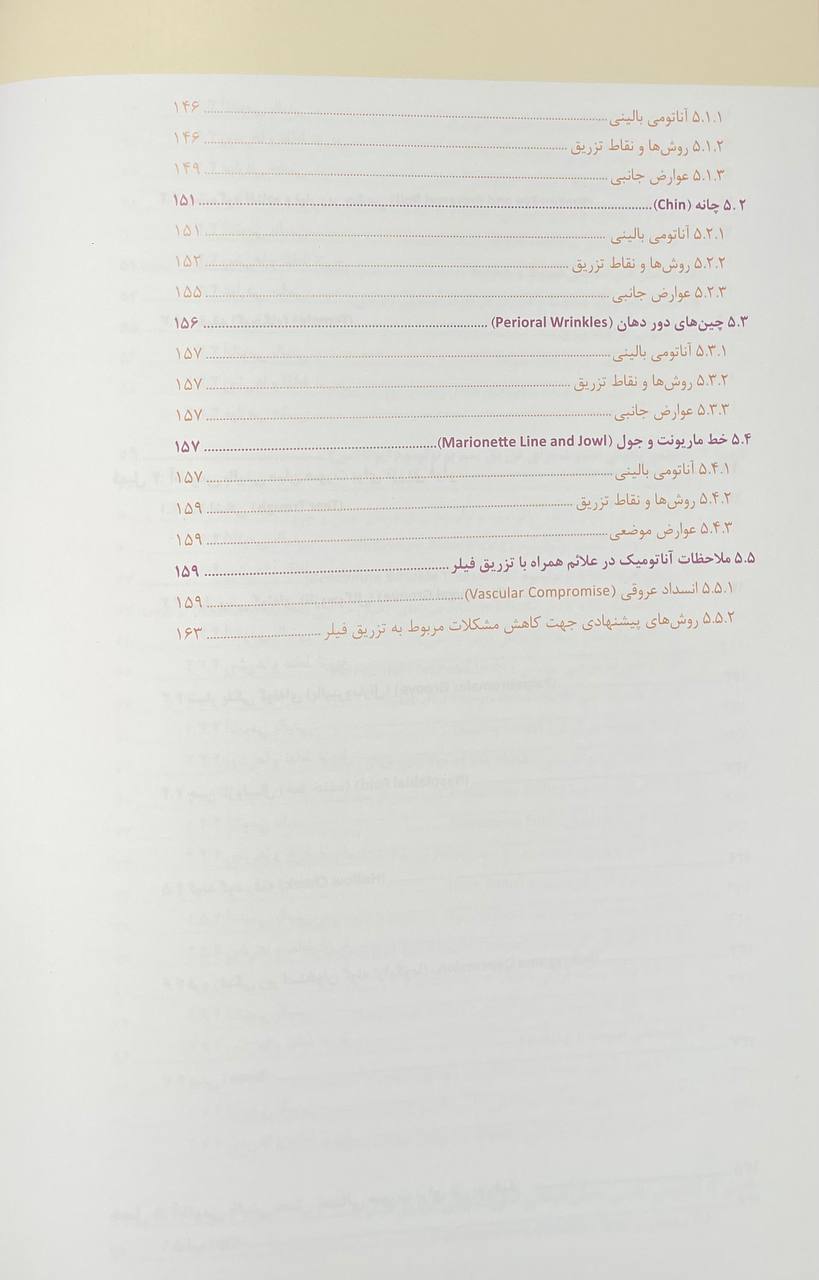 ۵.۱.۱ آناتومی بالینی ۱۴۶
۵.۱.۲ روش‌ها و نقاط تزریق ۱۴۶
۵.۱.۳ عوارض جانبی ۱۴۹
۵.۲ چانه (Chin) ۱۵۱
۵.۲.۱ آناتومی بالینی ۱۵۱
۵.۲.۲ روش‌ها و نقاط تزریق ۱۵۲
۵.۲.۳ عوارض جانبی ۱۵۵
۵.۳ چین‌های دور دهان (Perioral Wrinkles) ۱۵۶
۵.۳.۱ آناتومی بالینی ۱۵۷
۵.۳.۲ روش‌ها و نقاط تزریق ۱۵۷
۵.۳.۳ عوارض جانبی ۱۵۷
۵.۴ خط ماریونت و جول (Marionette Line and Jowl) ۱۵۷
۵.۴.۱ آناتومی بالینی ۱۵۷
۵.۴.۲ روش‌ها و نقاط تزریق ۱۵۹
۵.۴.۳ عوارض موضعی ۱۵۹
۵.۵ ملاحظات آناتومیک در علائم همراه با تزریق فیلر ۱۵۹
۵.۵.۱ انسداد عروقی (Vascular Compromise) ۱۵۹
۵.۵.۲ روش‌های پیشنهادی جهت کاهش مشکلات مربوط به تزریق فیلر ۱۶۳